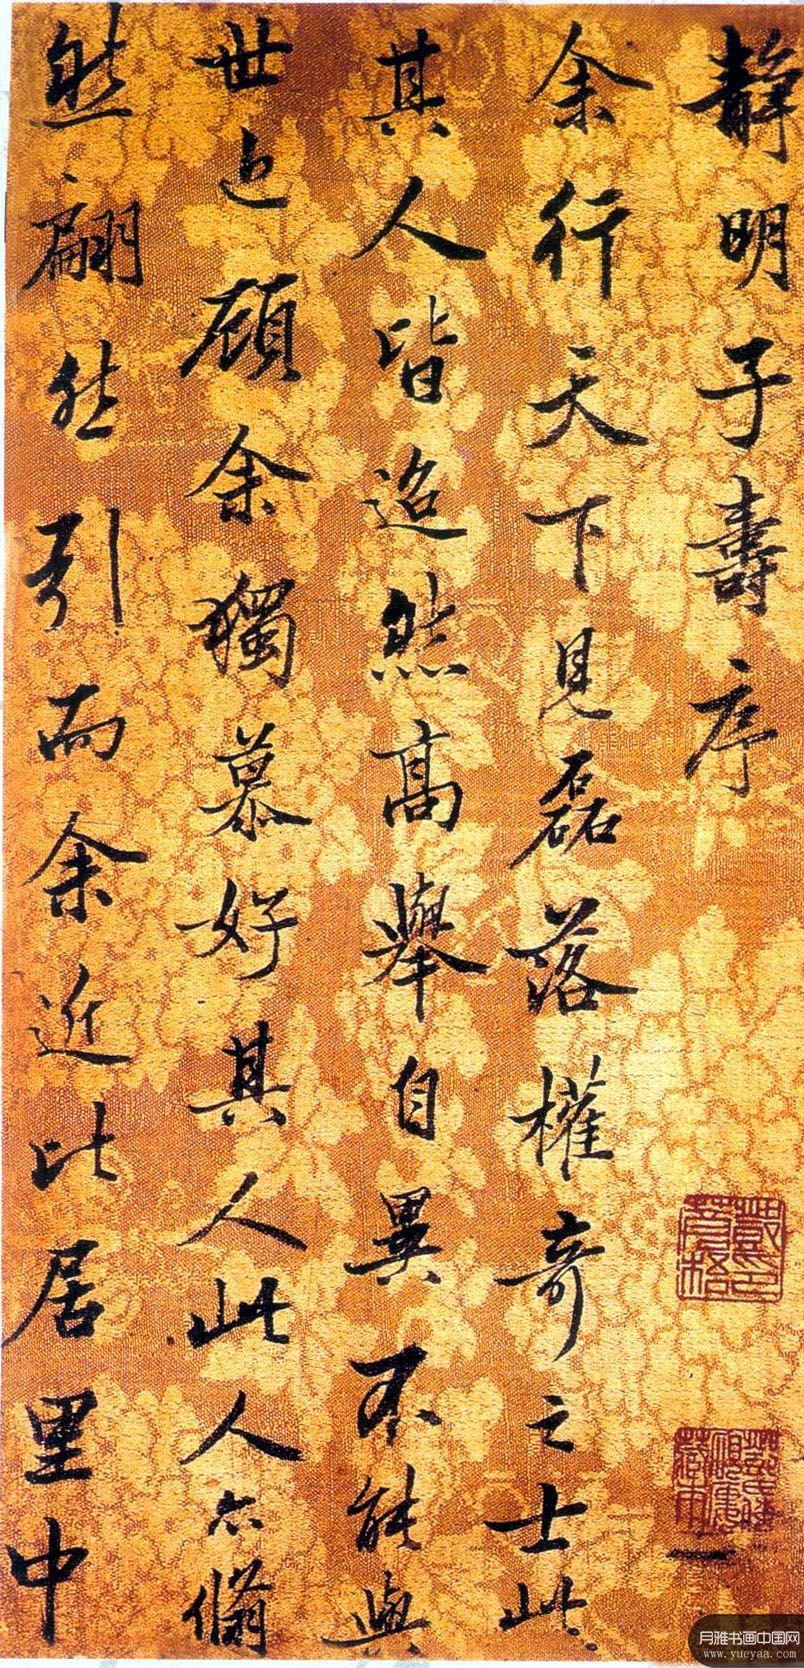 靜明子壽序
余行天下見磊落權奇之士此
其人皆迢然高舉自異不能與
世顧余獨慕好其人此人亦翛
然翩然引而余近比居里中
一
月雅书画中国网
www.yueyaa.com